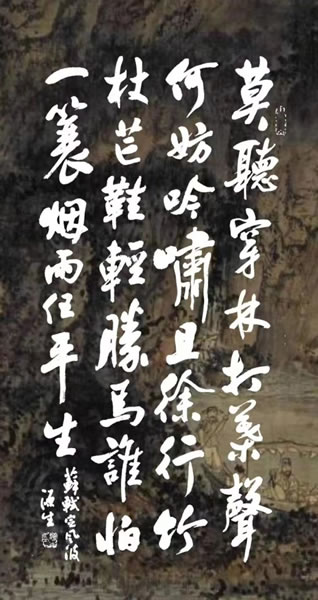 莫聽穿林打葉聲
何妨吟嘯且徐行竹
杖芒鞋輕勝馬誰怕
一蓑烟雨任平生
蘇軾定風波